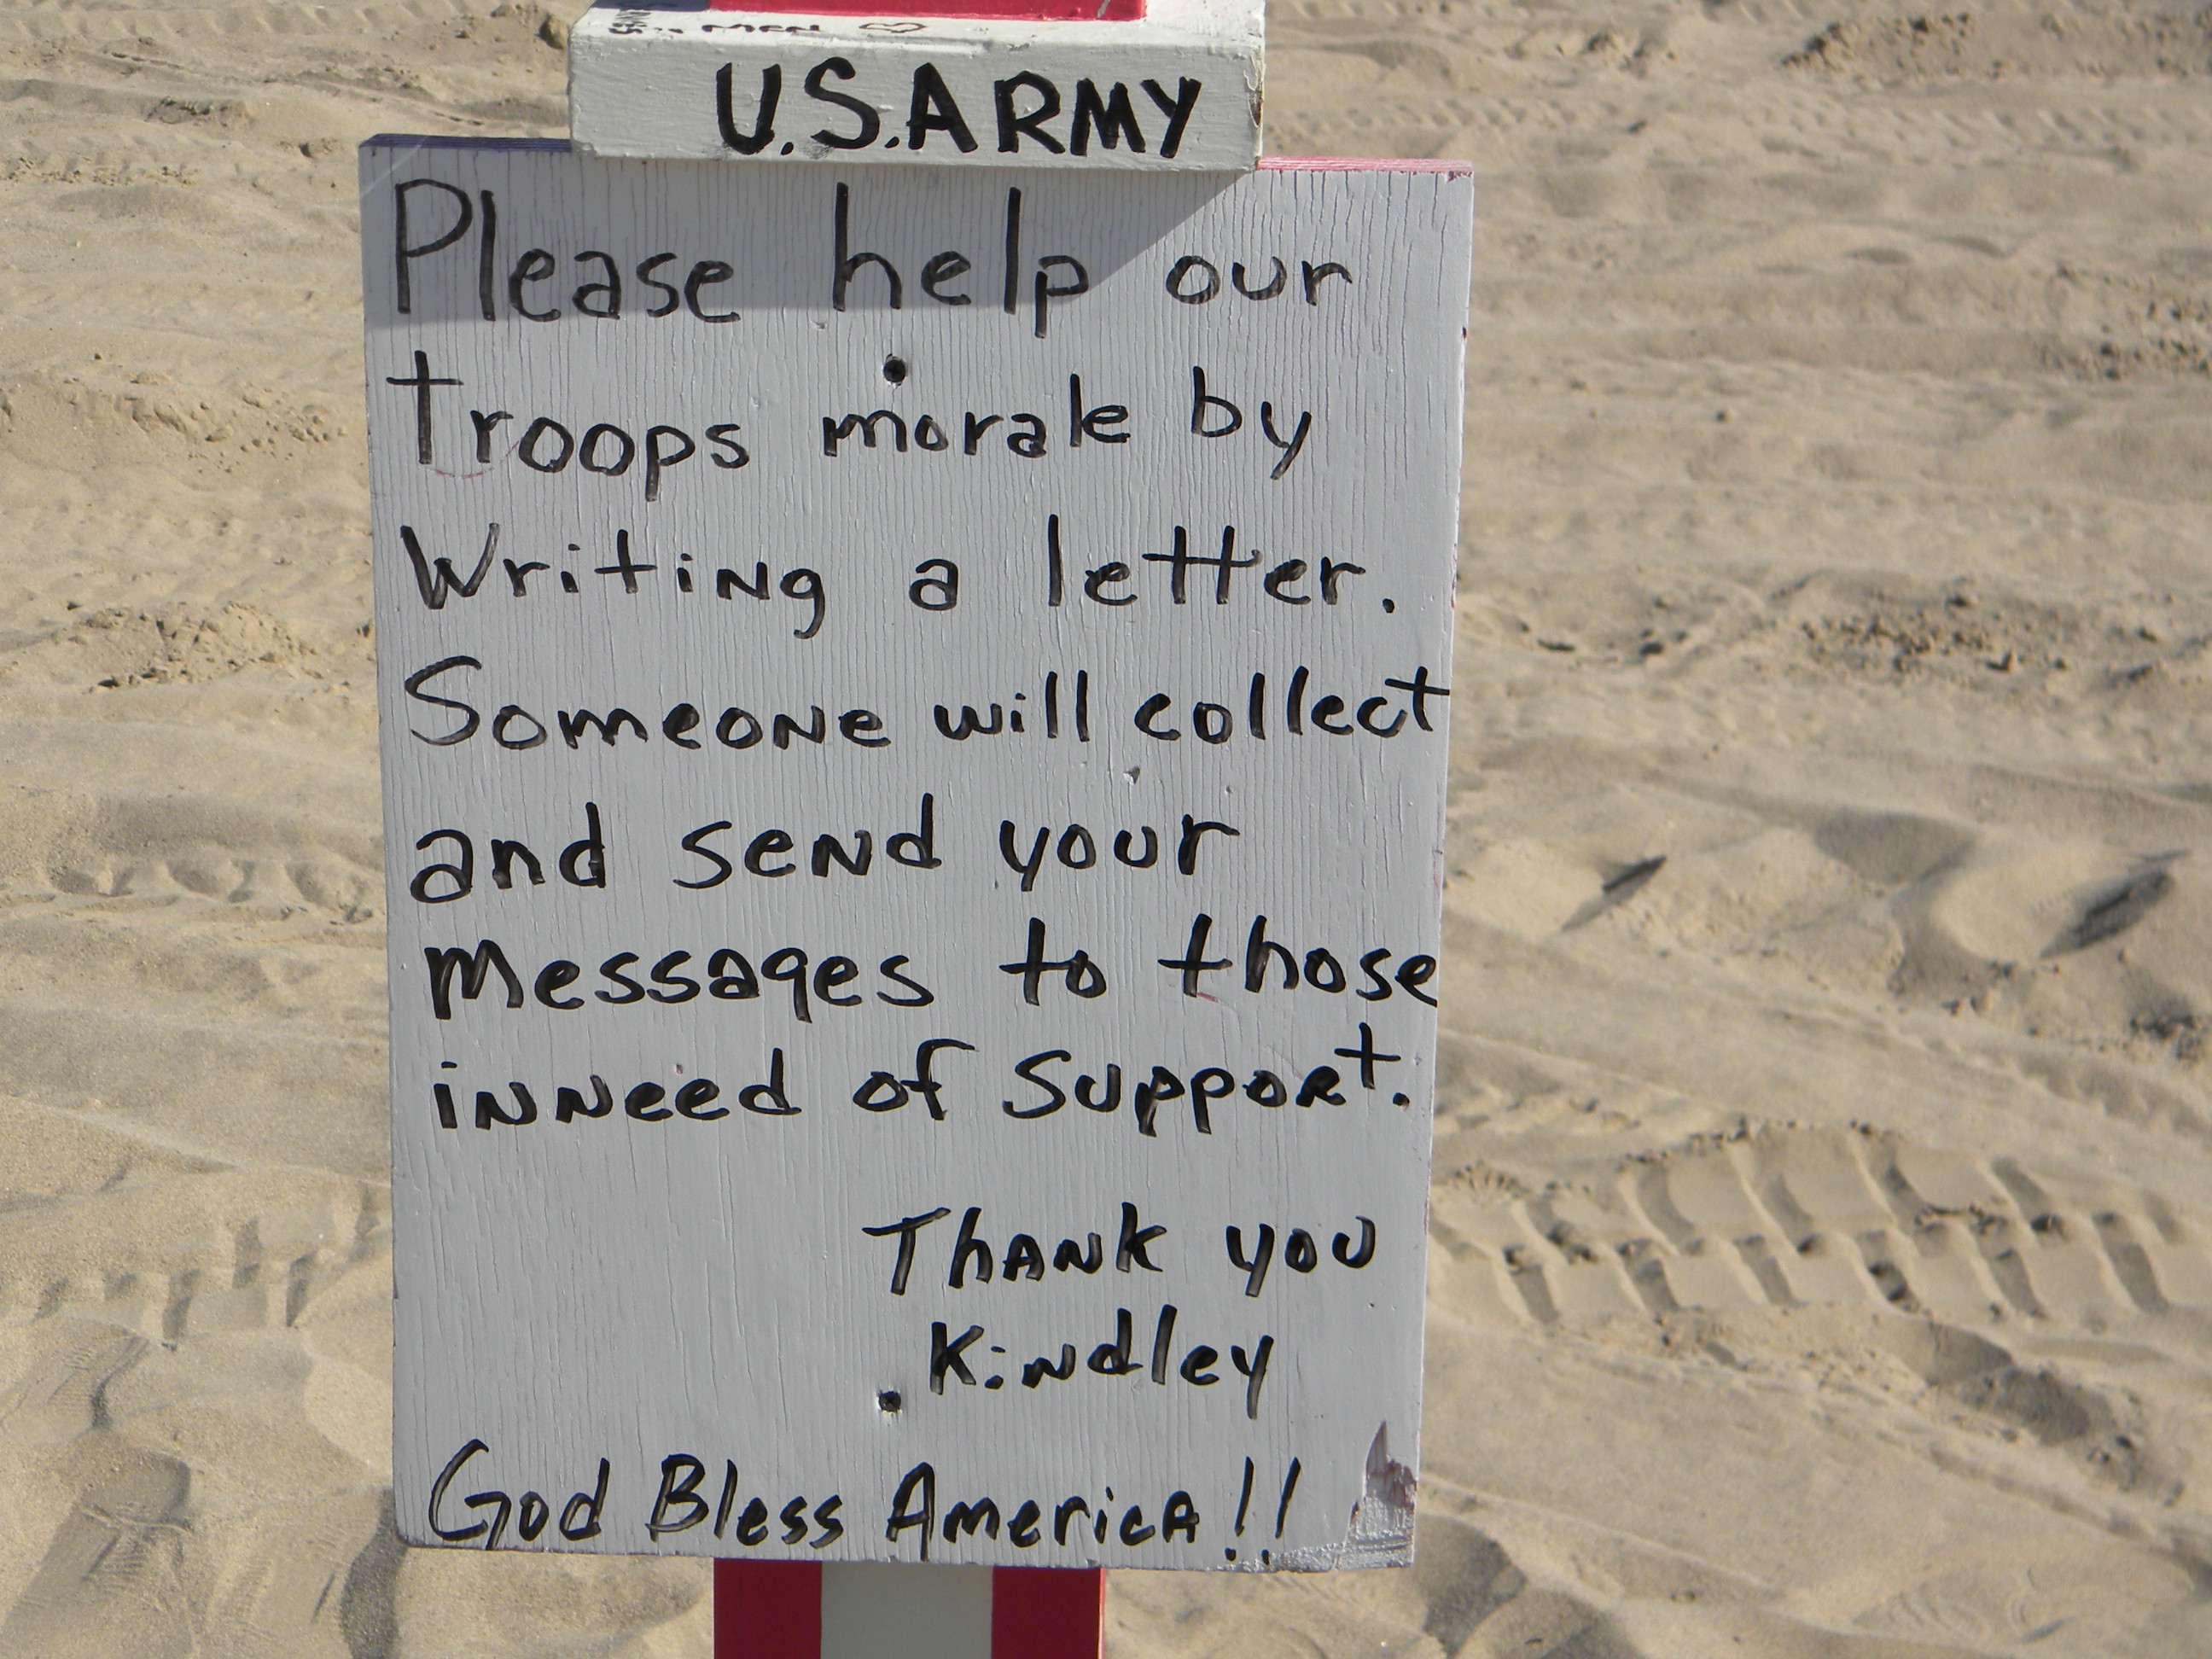 MEN
U.S. ARMY
Please help our
troops morale by
Writing a letter.
Someone will collect
and send your
Messages to those
inneed of support.
Thank you
Kindley
God Bless America!!